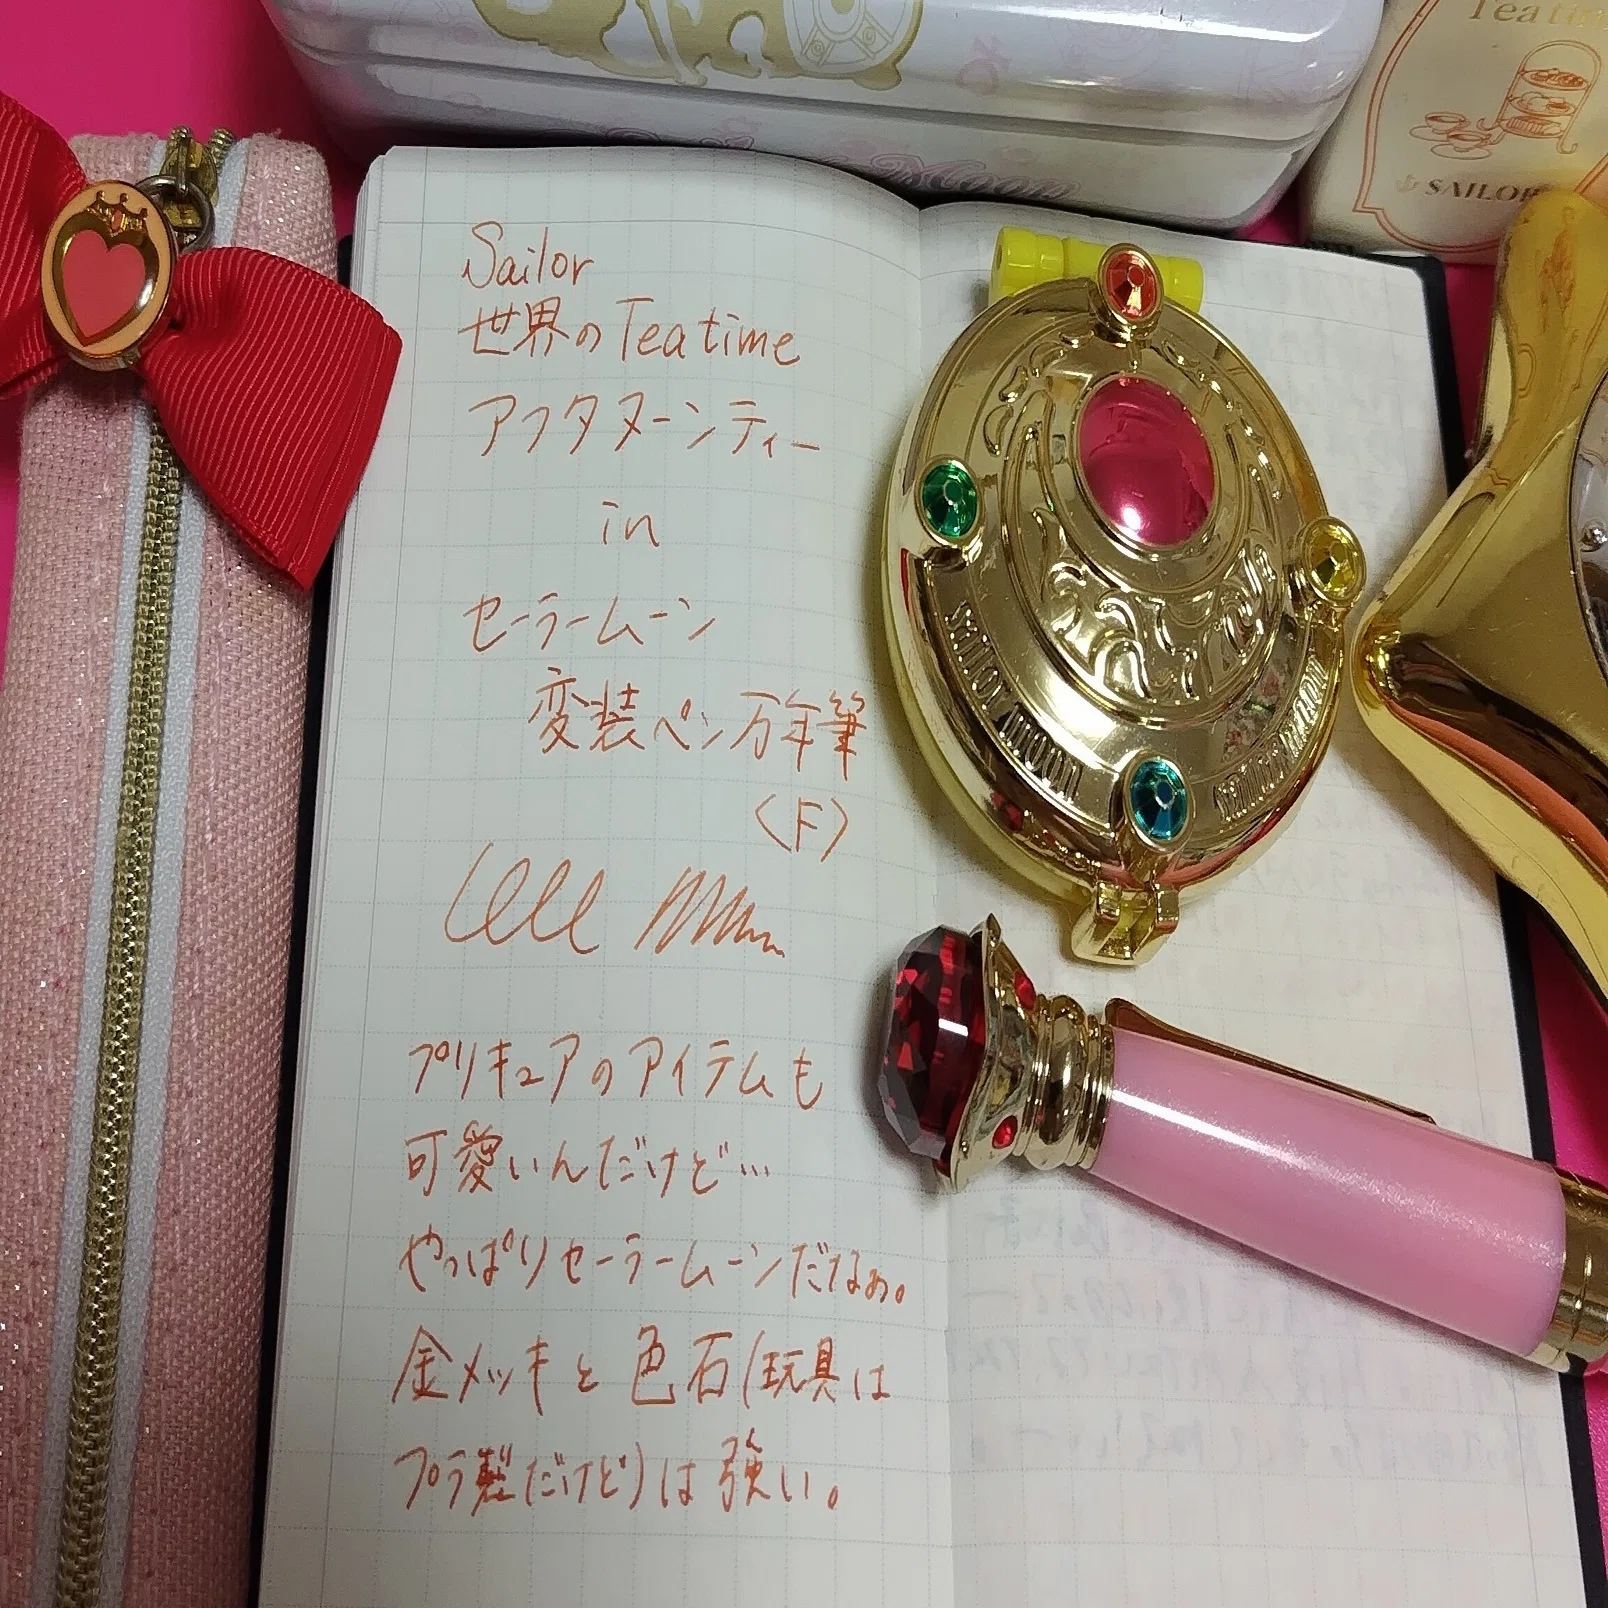 Tea time
SAILOR
Sailor
世界のTea time
アフタヌーンティー
in
セーラームーン
変装ペン万年筆
〈F〉
プリキュアのアイテムも
可愛いんだけど…
やっぱりセーラームーンだなぁ。
金メッキと色石(玩具は
プラ製だけど)は強い。
SAILOR MOON